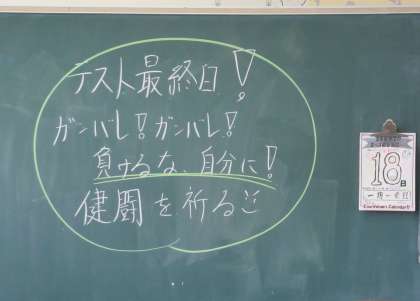 テスト最終日!
ガンバレ!ガンバレ!
負けるな、自分に!
健闘を祈る
18
日